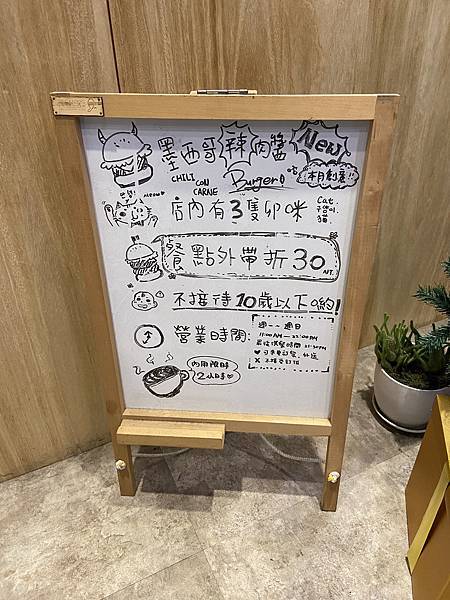 墨西哥辣肉醬
New
本月創意!!
CHILI CON CARNE
Burger!
meow~
店內有3隻卯咪
Cat.
貓.
餐點外帶折30
NT.
不接待10歲以下喲!
營業時間:
週一~週日
11:00AM—22:00PM
最後供餐時間 21:30PM
內用限時
2小時♥